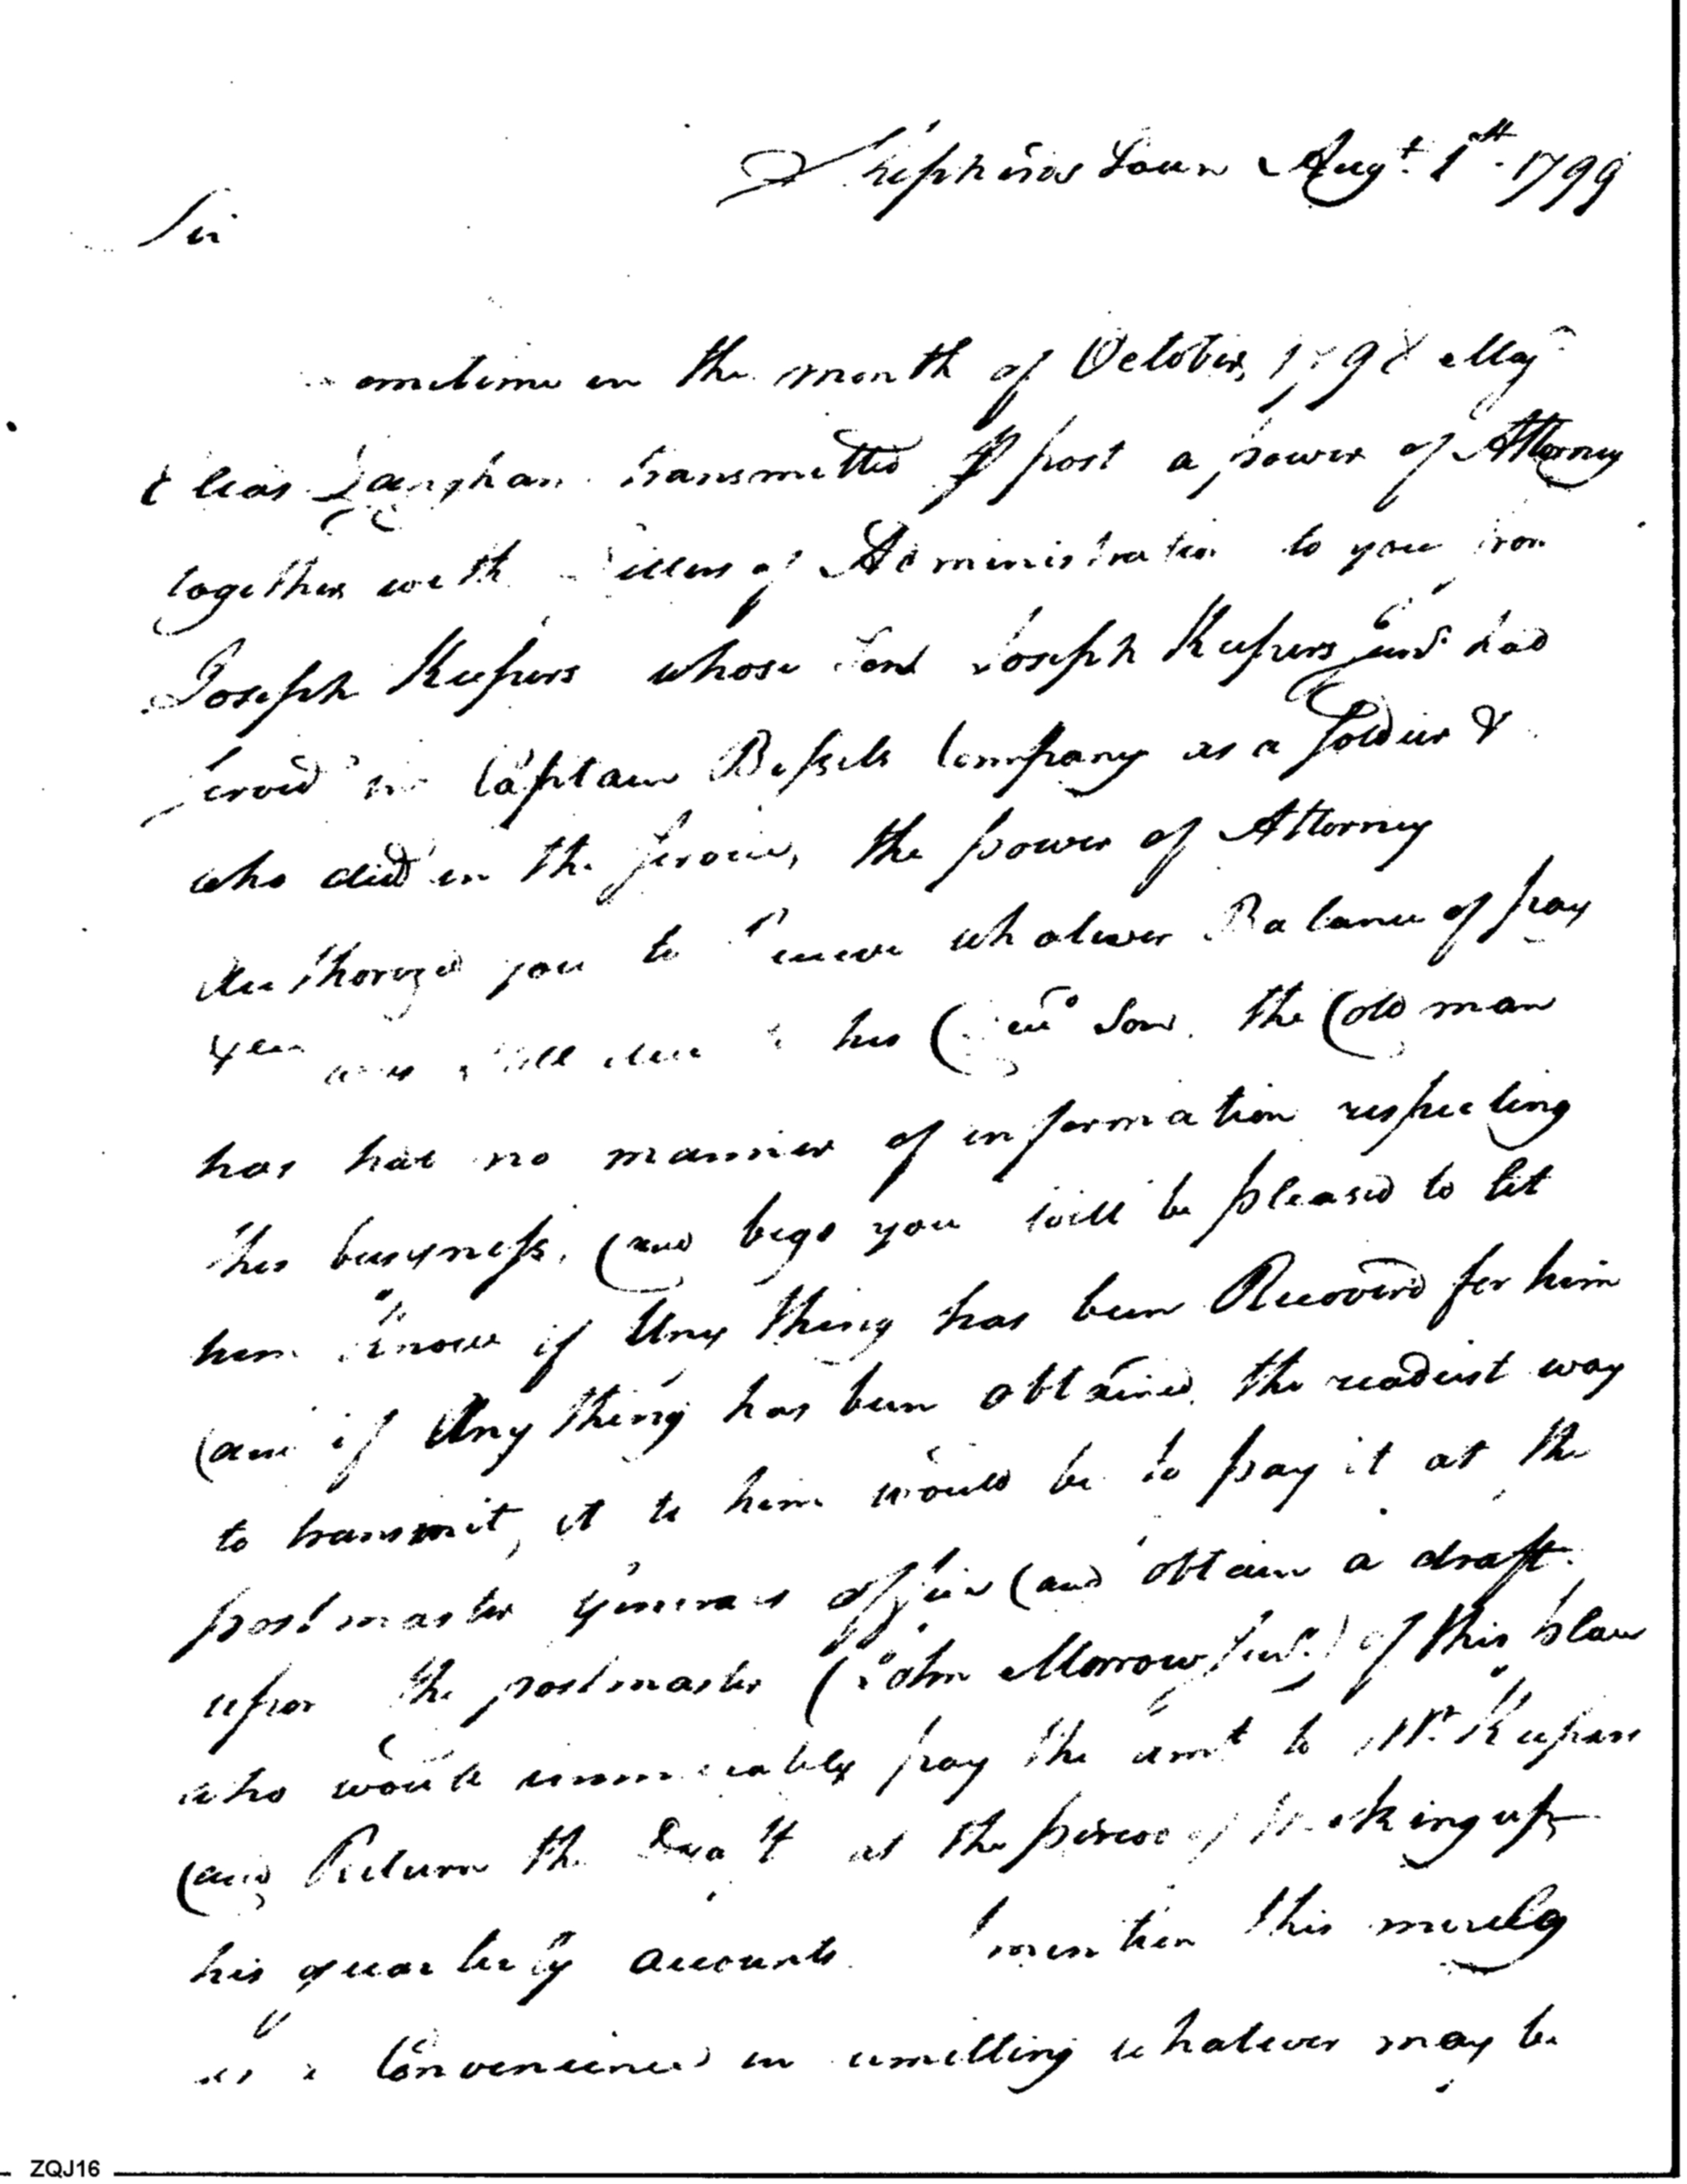 Shepherds Town Augt. 1st. 1799
Sir
Sometime in the month of October, 1798 Majr
Elias Langham transmitted ⅌ post a power of Attorney
together with Letters of Administration to you from
Joseph Keepers whose Son Joseph Keepers Junr. had
served in Captain Bissels Company as a Soldier &
who died in the service, the power of Attorney
Authorized you to Receive whatever Balance of pay
&ca was still due to his son. the old man
has had no manner of information respecting
this busyness, and begs you will be pleased to let
him know if Any thing has been Recovered for him
and if Any thing has been obtained, the readiest way
to transmit, it to him would be to pay it at the
postmaster generals office and obtain a draft
upon the postmaster (John Morrow ) of this place
who would immediately pay the amt to Mr. Keepers
and Return the Draft at the period of Making up
his quarterly accounts. I mention this merely
as a Convenience in remitting whatever may be
ZQJ16